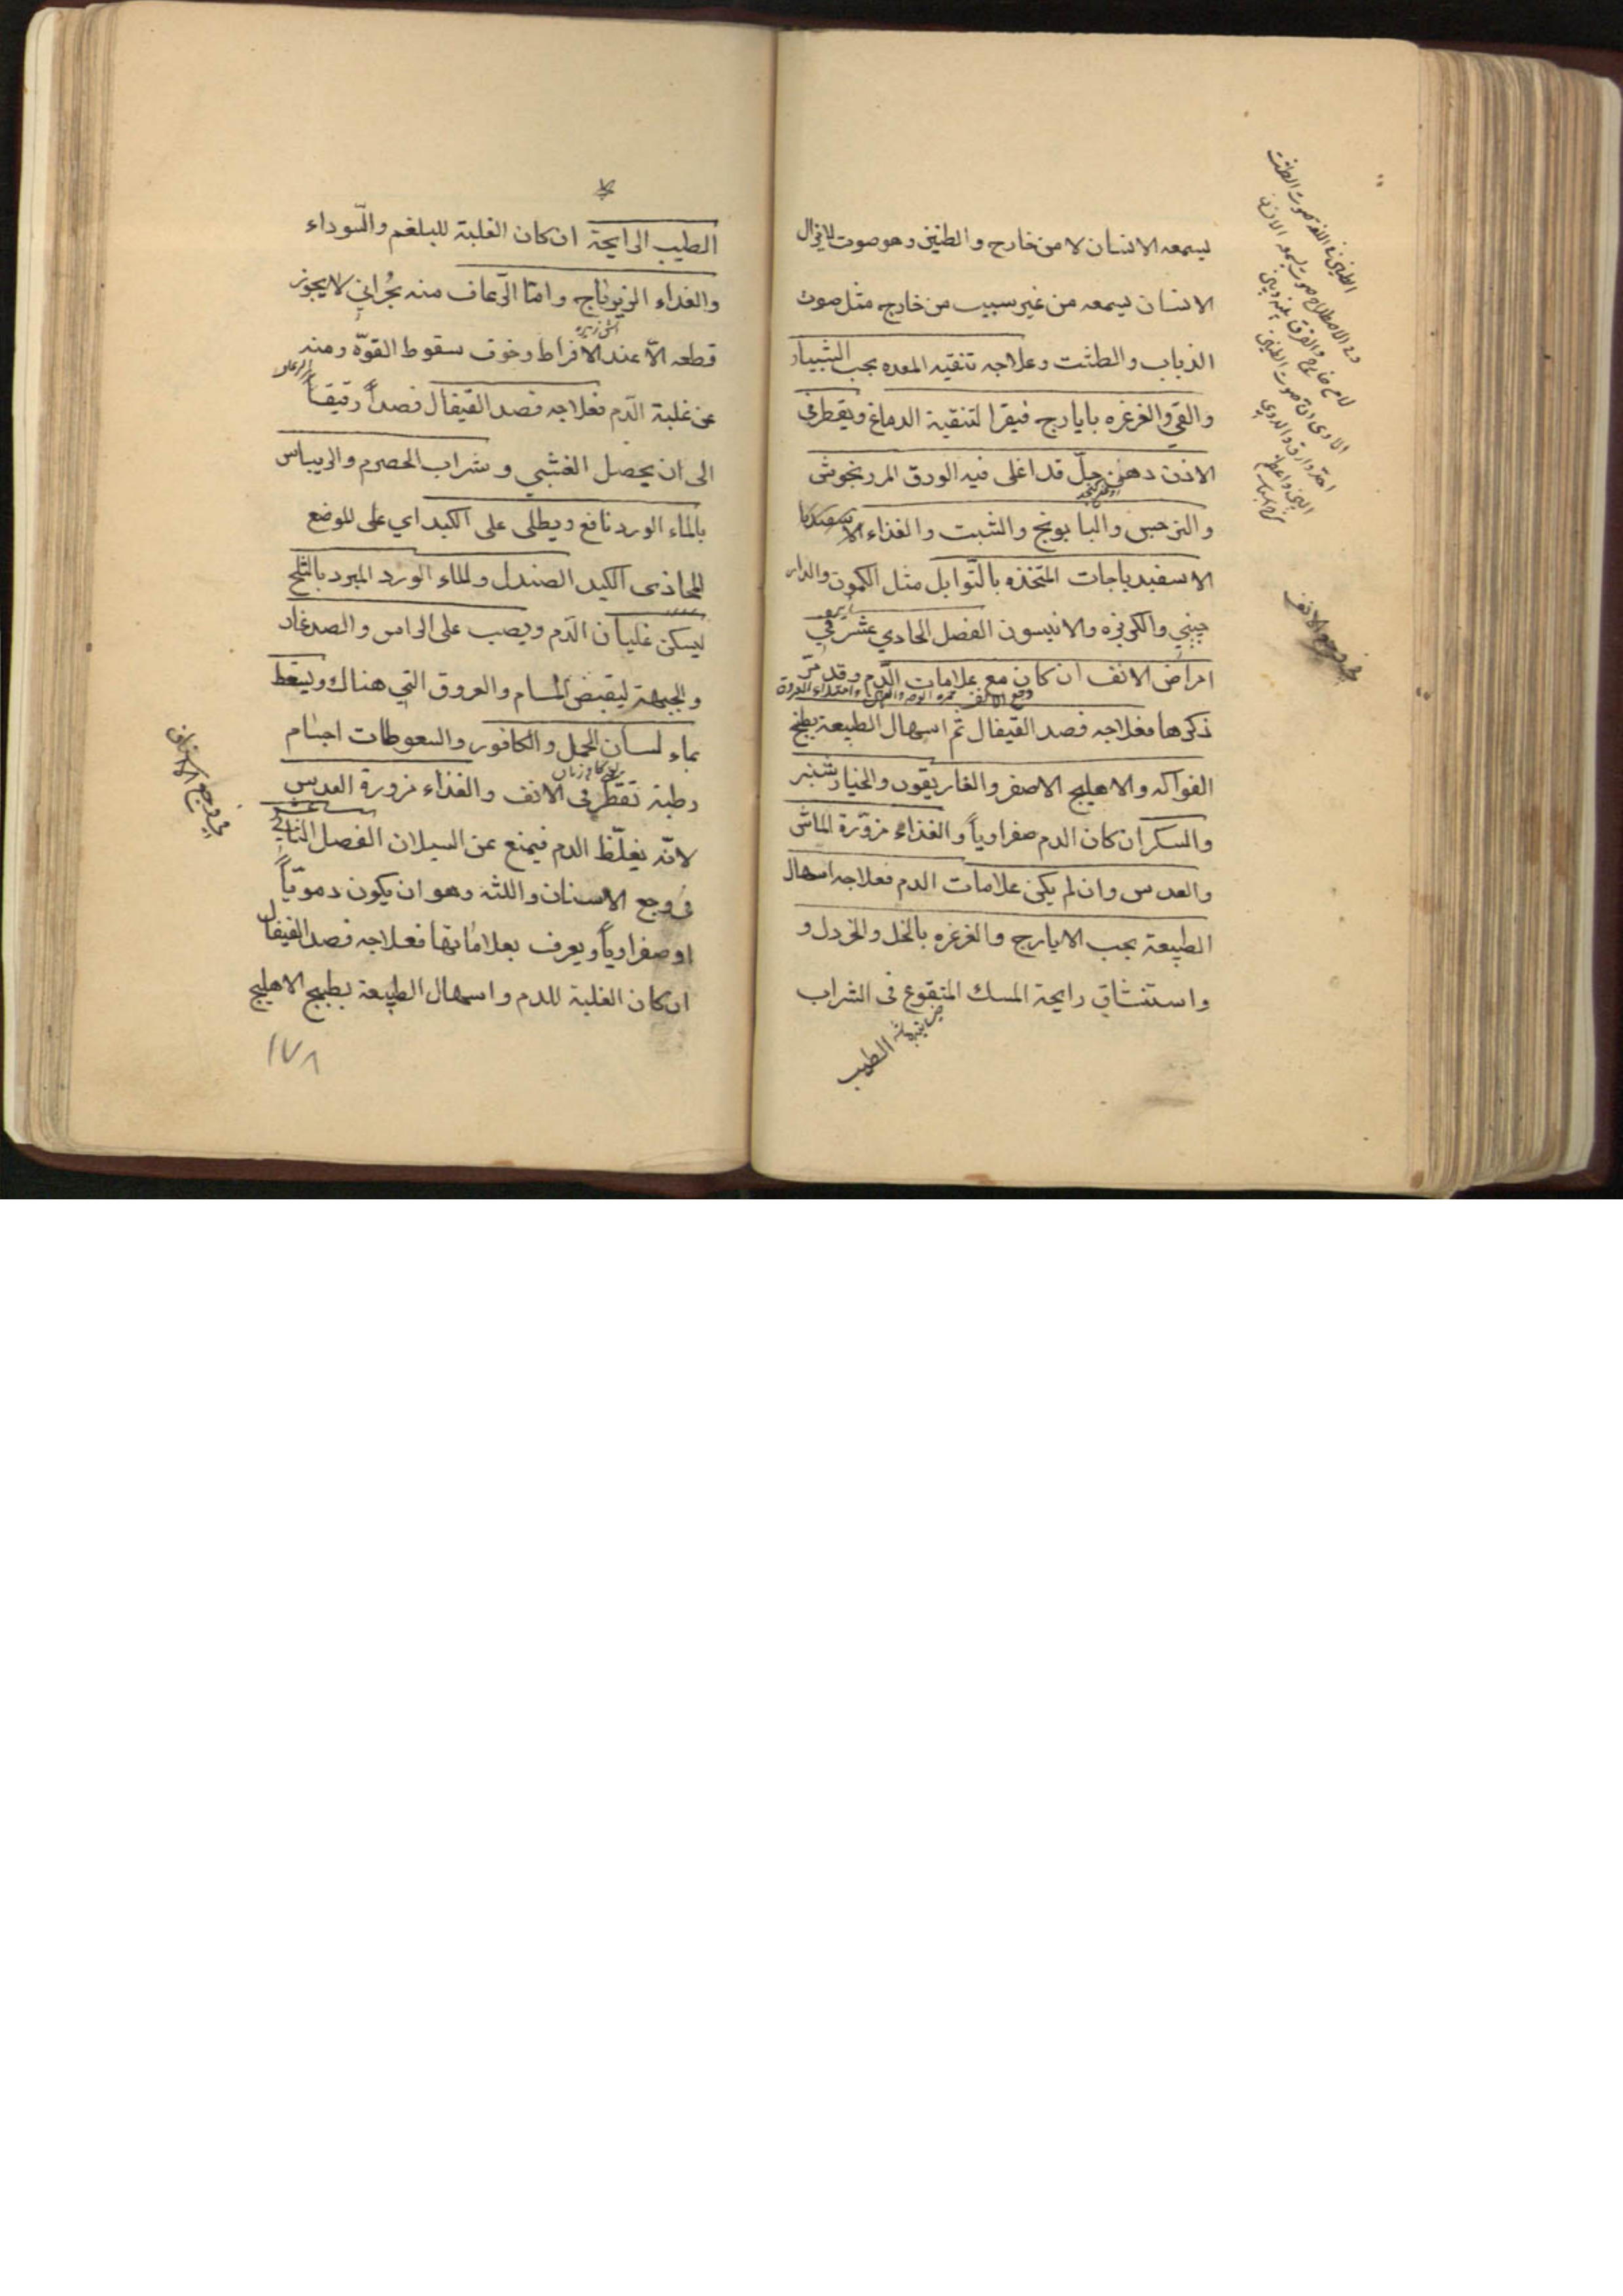 يسمعه الانسان لا من خارج والطنين وهو صوت لا يزال
الانسان يسمعه من غير سبب من خارج مثل صوت
الذباب والطشت وعلاجه تنقيه المعده بحب الشبيار
والقي والغرغره بايارج فيقرا لتنقية الدماغ ويقطر في
الاذن دهن حل قد اغلى فيه الورق المرزنجوش
والنرجس والبابونج والشبت والغذاء
الاسفيدباجات المتخذه بالتوابل مثل الكمون والدار
چيني والكرفزه والانيسون الفصل الحادي عشر في
امراض الانف ان كان مع علامات الدم وقد مر
ذكرها فعلاجه فصد القيفال ثم اسهال الطبيعة بطبخ
الفواكه والاهليلج الاصفر والغاريقون والخيارشنبر
والسكر ان كان الدم صفراوياً والغذاء مزوّرة الماش
والعدس وان لم يكن علامات الدم فعلاجه اسهال
الطبيعة بحب الايارج والغرغره بالخل والخردل و
واستنشاق رايحة المسك المنقوع في الشراب
الطيب
في وجع الانف
الطيب الرايحة ان كان الغلبة للبلغم والسّوداء
والغذاء الزيرباج وامّا الرّعاف منه بُحراني لا يجوز
قطعه الّا عند الافراط وخوف سقوط القوّة ومنه
عن غلبة الدّم فعلاجه فصد القيفال فصداً رقيقاً
الى ان يحصل الغشي وشراب الحصرم والريباس
بالماء الورد نافع ويطلى على الكبد اي على الموضع
المحاذى الكبد الصندل والماء الورد المبرد بالثلج
ليسكن غليان الدّم ويصب على الراس والصدغان
والجبهة ليقبض المسام والعروق التي هناك ويسعط
بماء لسان الحمل والكافور والسعوطات اجسام
رطبة تقطر في الانف والغذاء مزورة العدس
لانّه يغلّظ الدم فيمنع عن السيلان الفصل الثاني عشر
في وجع الاسنان واللثه وهو ان يكون دمويّاً
او صفراوياً ويعرف بعلاماتها فعلاجه فصد القيفال
ان كان الغلبة للدم واسهال الطبيعة بطبيخ الاهليلج
في وجع الاسنان
١٧٨